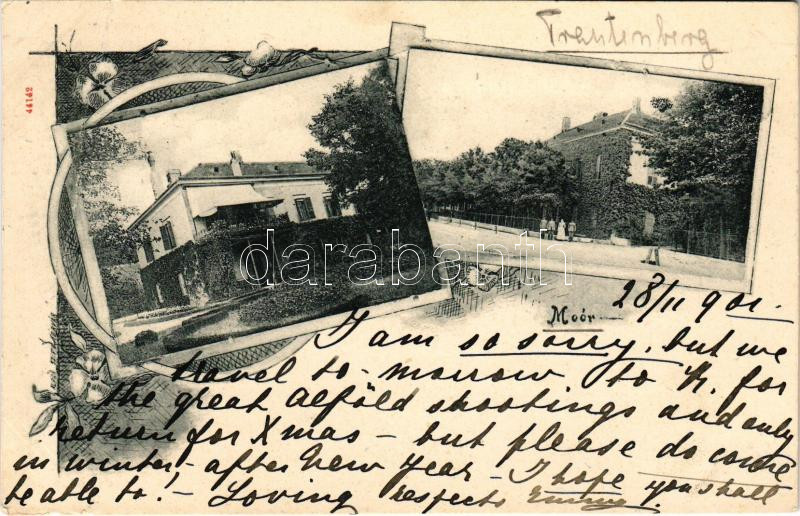 Trautenberg
44142
darabanth
Moór
28/11 901.
I am so sorry, but we
travel to-morrow to K. for
the great Alföld shootings and only
return for Xmas - but please do come
in winter - after New Year - I hope you shall
be able to! - Loving respects Emmy